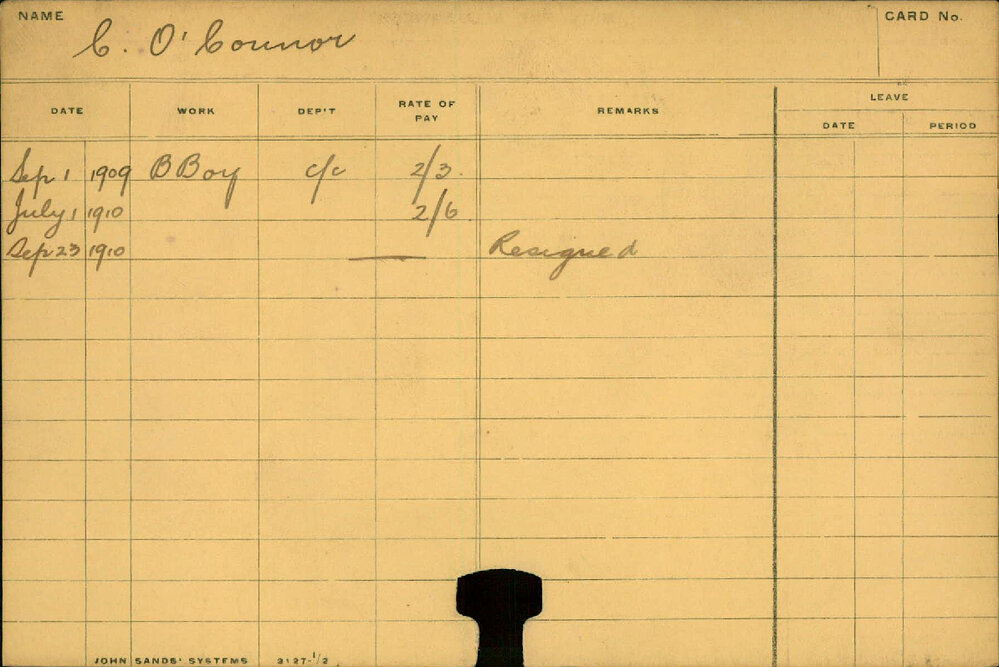 NAME
CARD No.
C. O'Connor
DATE WORK DEP'T RATE OF PAY REMARKS LEAVE
DATE PERIOD
Sep 1 1909 B Boy c/c 2/3.
July 1 1910 2/6.
Sep 23 1910 — Resigned
JOHN SANDS' SYSTEMS 3127-1/2